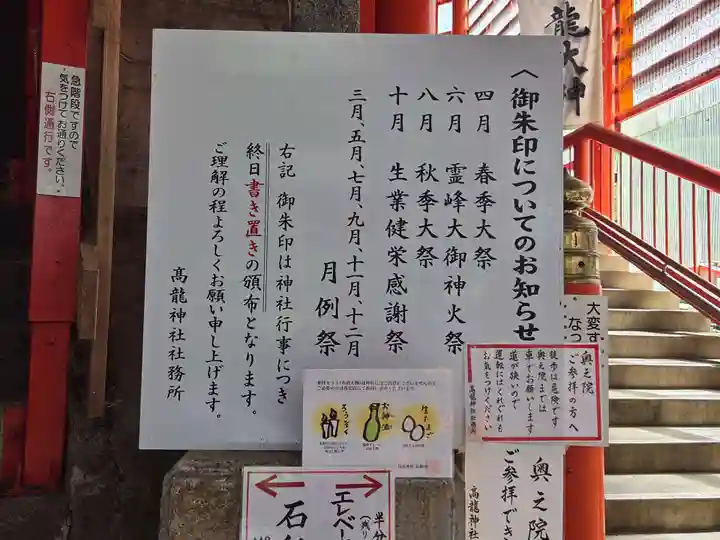 龍大神
急階段ですので
気をつけてお通りください。
右側通行です。
〈御朱印についてのお知らせ
四月 春季大祭
六月 霊峰大御神火祭
八月 秋季大祭
十月 生業健栄感謝祭
三月、五月、七月、九月、十一月、十二月
月例祭
右記 御朱印は神社行事につき
終日書き置きの頒布となります。
ご理解の程よろしくお願い申し上げます。
高龍神社社務所
生たまご
お神酒
ろうそく
奥之院
ご参拝の方へ
徒歩は危険です
奥之院までは
車でお願いします
道が狭いので
運転にはくれぐれも
お気をつけください
高龍神社社務所
大変す
なっ
奥之院
ご参拝でき
高龍神社
半分
エレベー